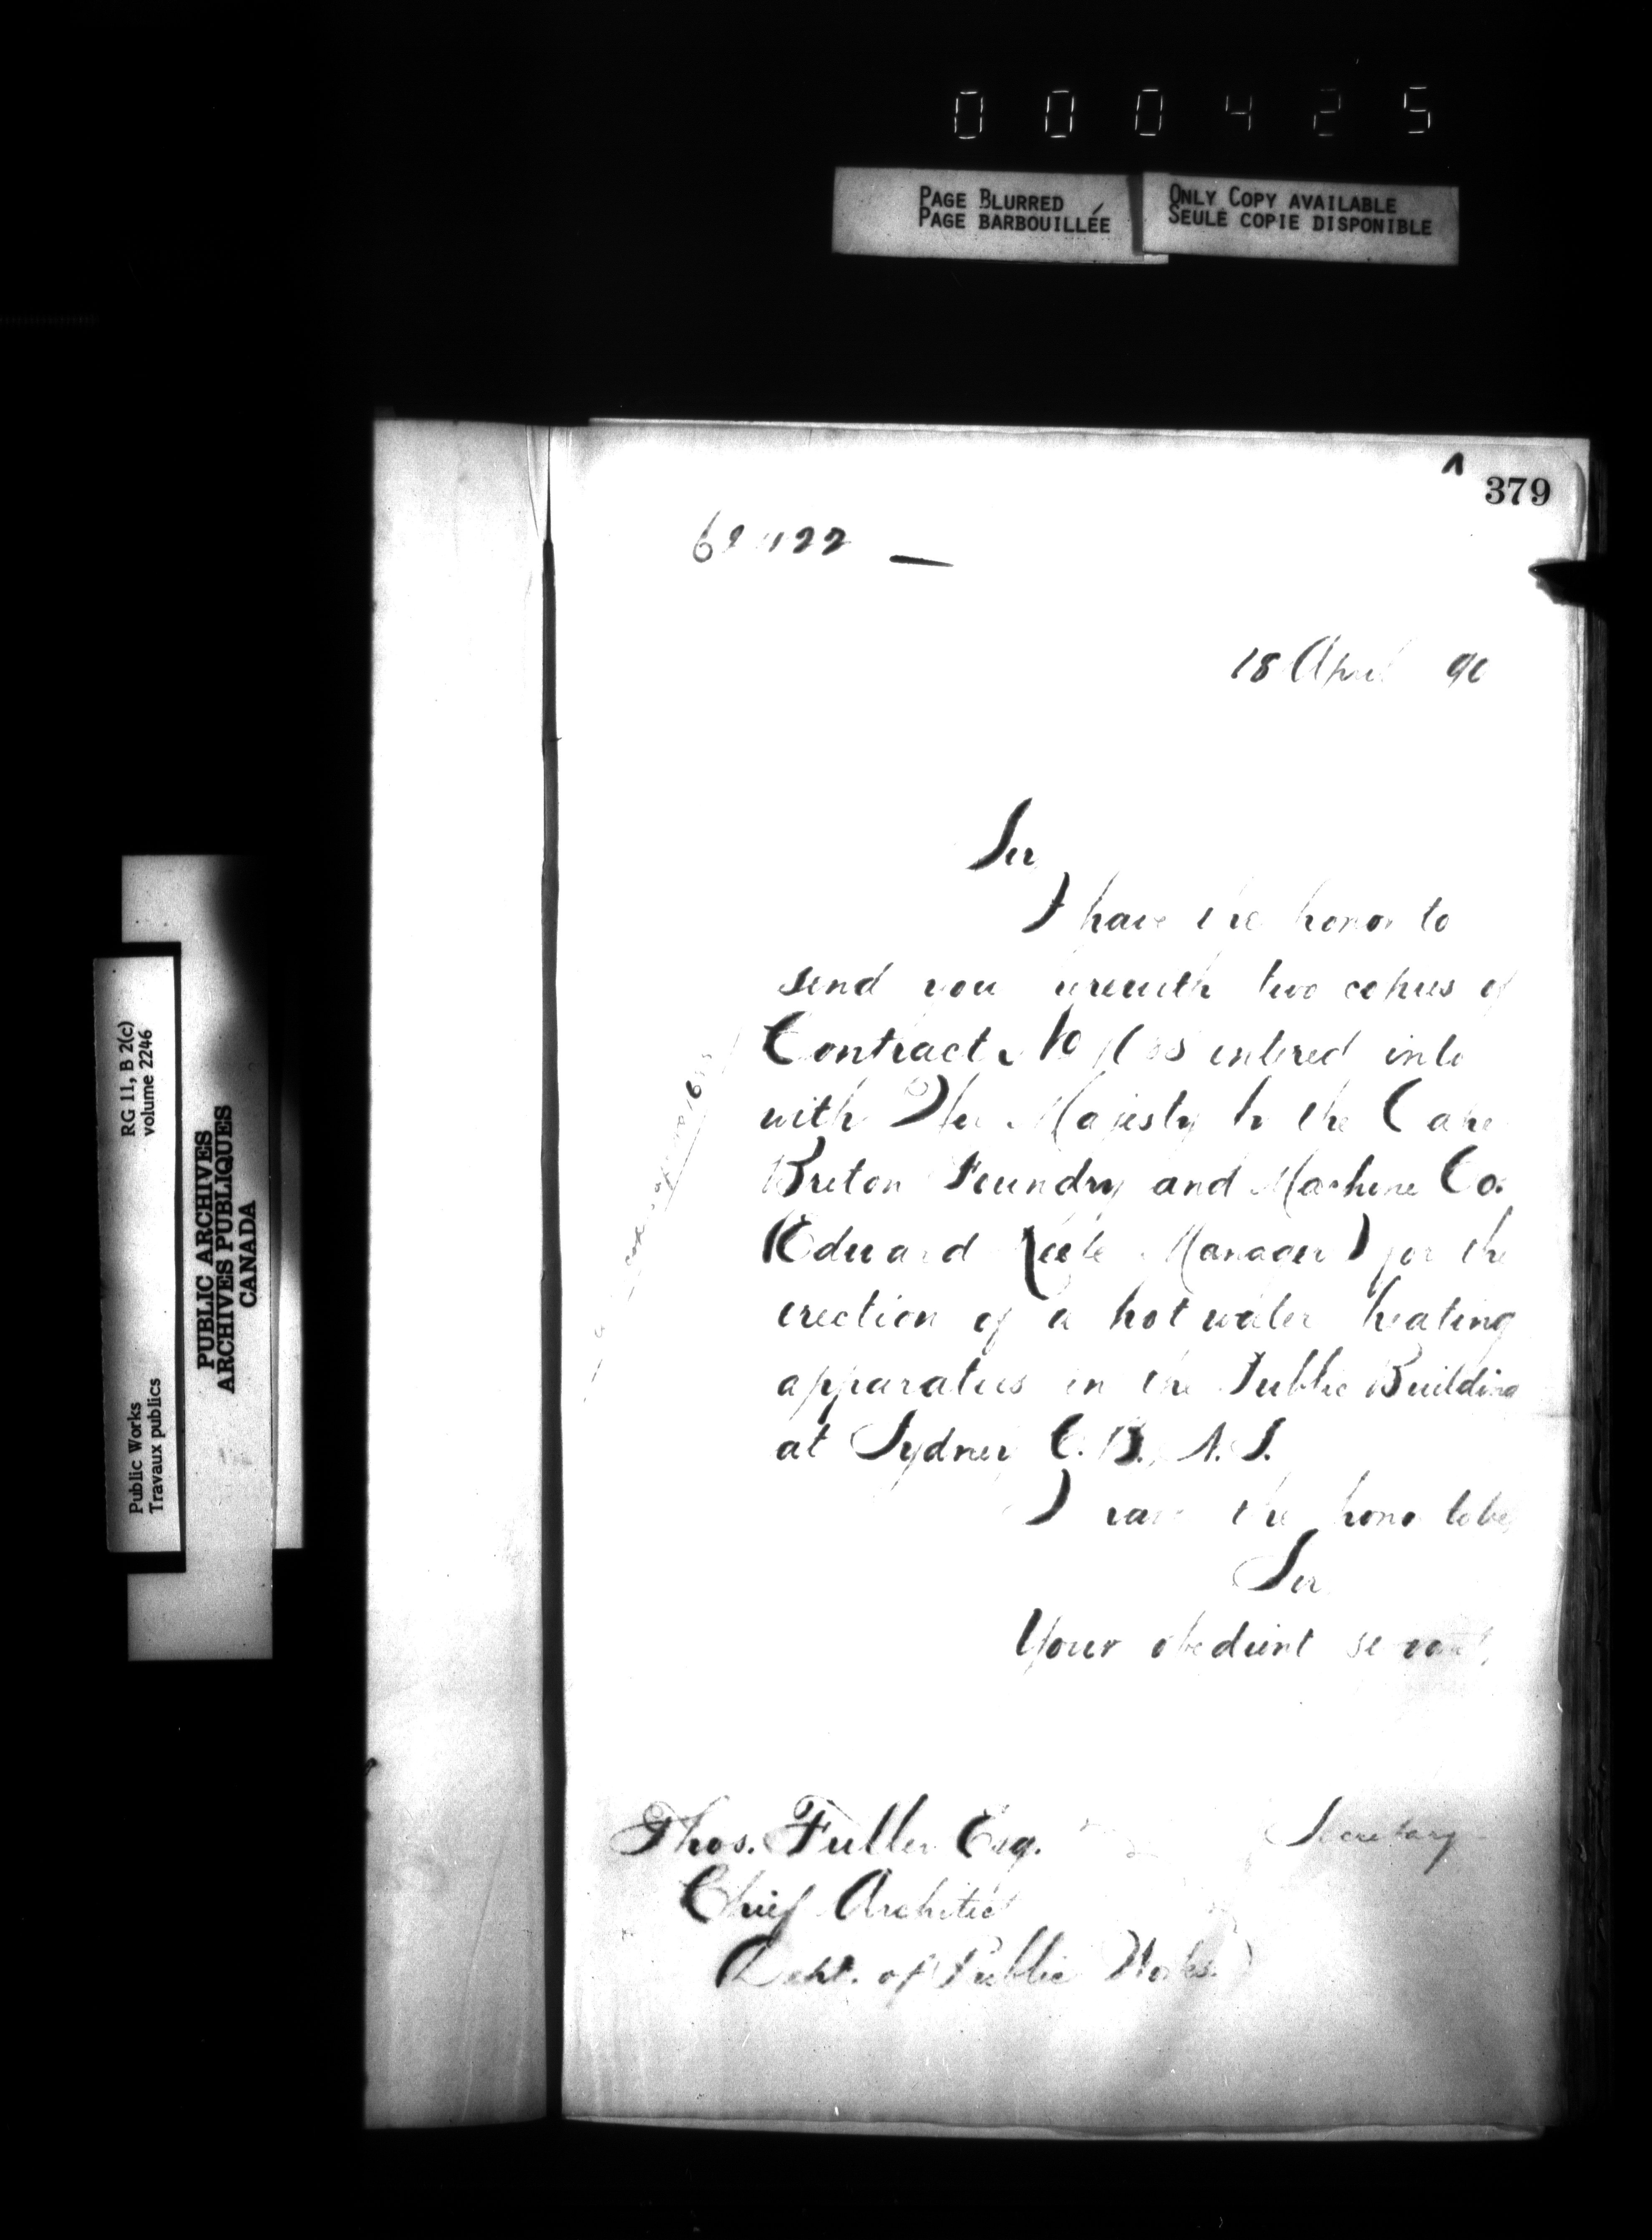 000425
PAGE BLURRED
PAGE BARBOUILLÉE
ONLY COPY AVAILABLE
SEULE COPIE DISPONIBLE
379
18 April 90
Sir,
I have the honor to
send you herewith two copies of
Contract No entered into
with Her Majesty by the Cape
Breton Foundry and Machine Co.
(Edward Manager) for the
erection of a hot water heating
apparatus in the Public Building
at Sydney C. B., N. S.
I have the honor to be,
Sir
Your obedient servant,
Secretary
Thos. Fuller Esq.
Chief Architect
Dept. of Public Works.
RG 11, B 2(c)
volume 2246
Public Works
Travaux publics
PUBLIC ARCHIVES
ARCHIVES PUBLIQUES
CANADA